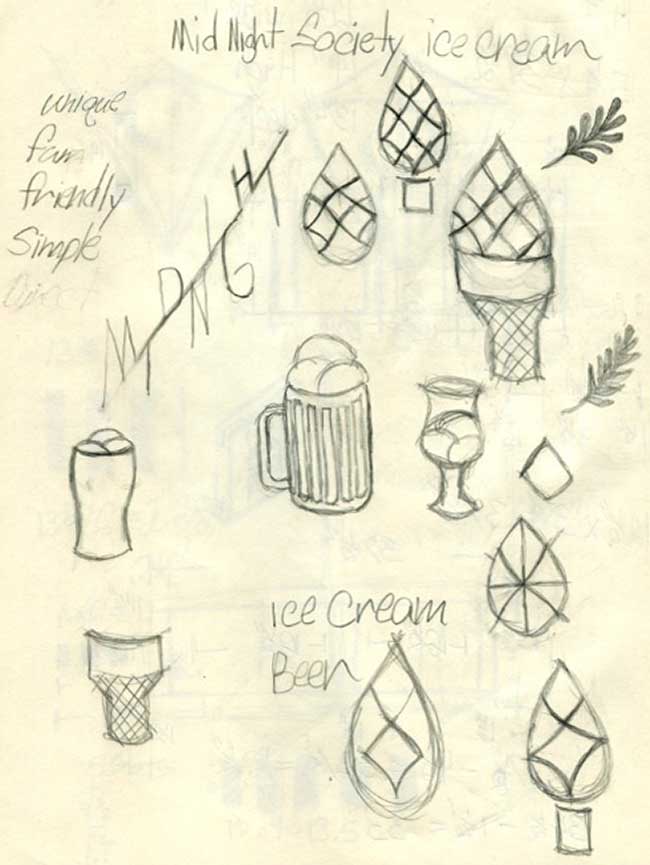 Mid Night Society ice cream
unique
fun
friendly
Simple
MIDNIGHT
ice Cream
Beer